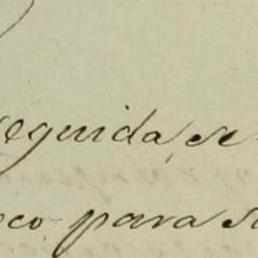 seguida, se
eco para s